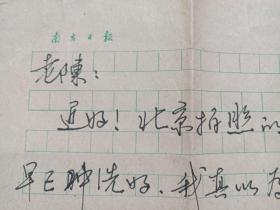 南方日报
老陈：
近好！北京拍照的
早已冲洗好．我真以为